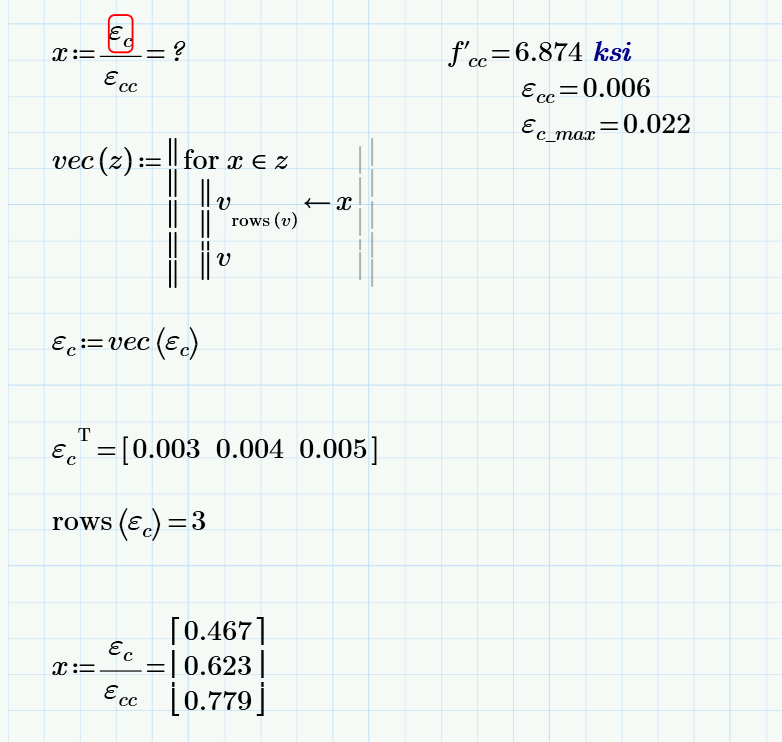 x:=ε_c/ε_cc=?
f'_cc=6.874 ksi
ε_cc=0.006
ε_c_max=0.022
vec(z):=‖for x ∈ z
‖ ‖v_rows(v)←x
‖ ‖v
ε_c:=vec(ε_c)
ε_c^T=[0.003 0.004 0.005]
rows(ε_c)=3
x:=ε_c/ε_cc=[0.467
0.623
0.779]